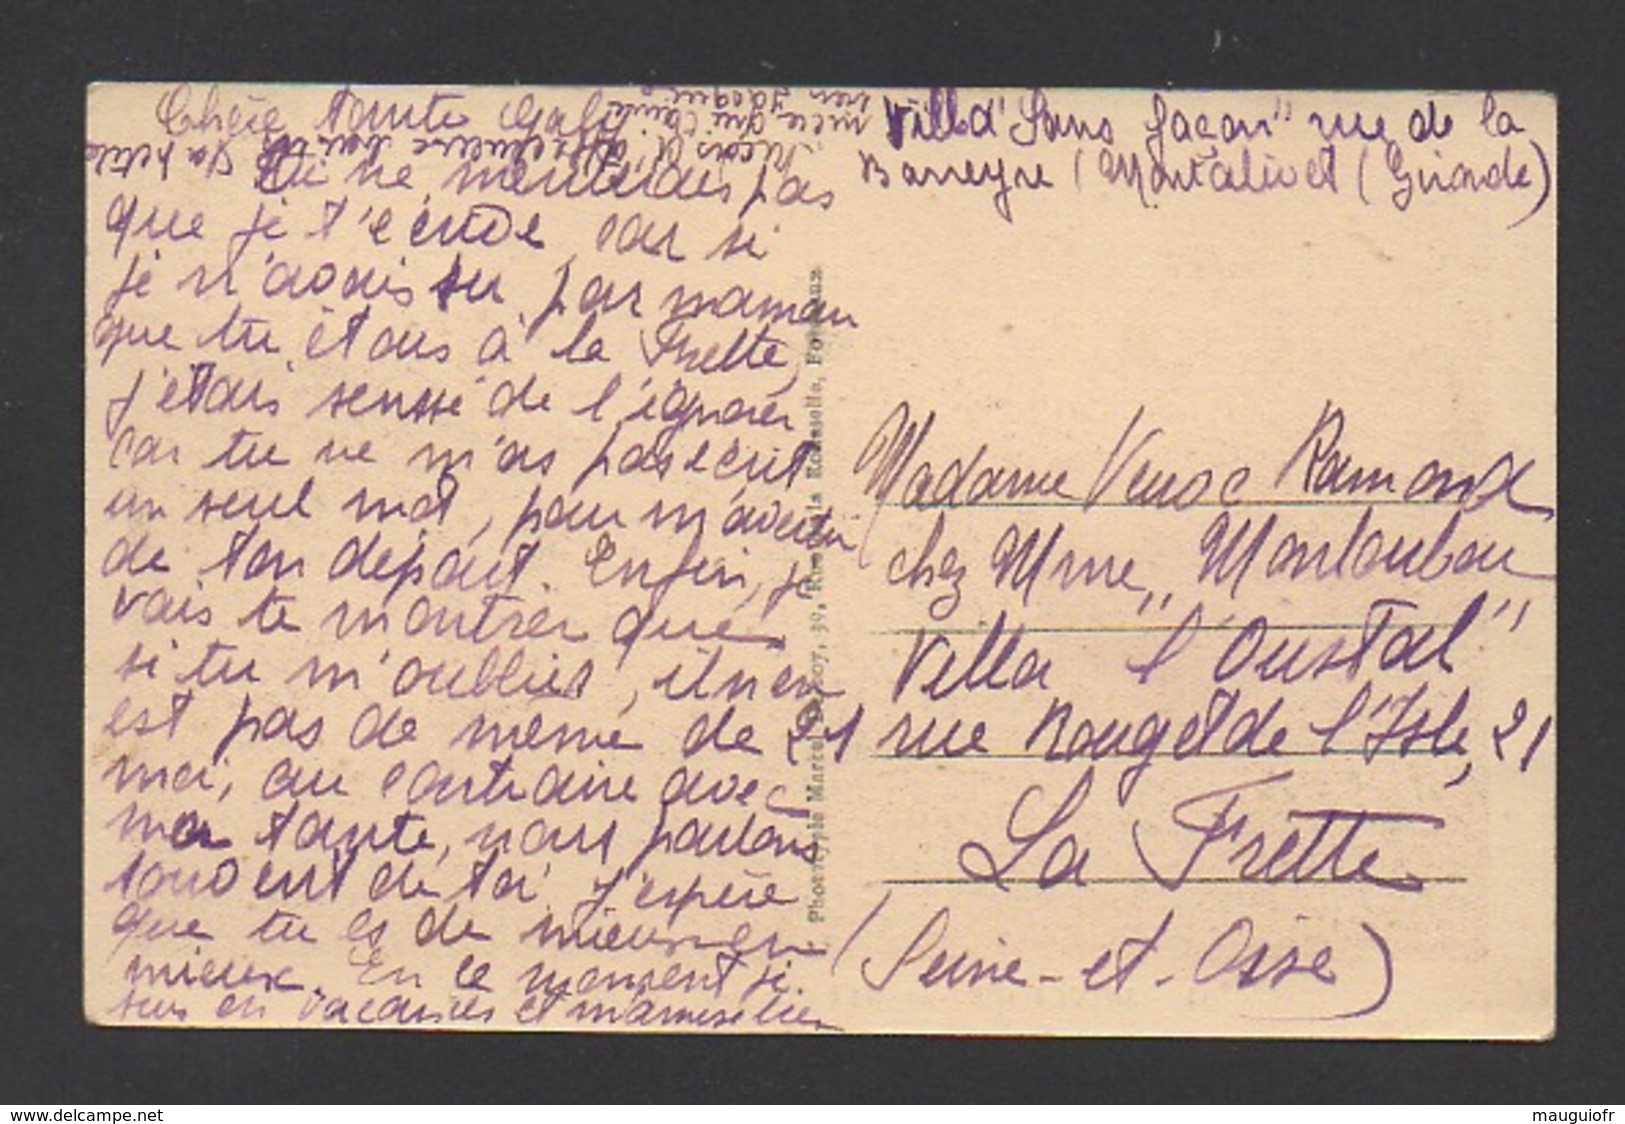 Chère tante Gaby
Tu ne mériterais pas
que je t'écrive, car si
je n'avais su par maman
que tu étais à la Frette,
j'étais senssé de l'ignorer
car tu ne m'as pas écrit
un seul mot, pour m'avertir
de ton départ. Enfin, je
vais te montrer que
si tu m'oublies, il n'en
est pas de même de
moi, au contraire avec
ma tante, nous parlons
souvent de toi j'espère
que tu es de mieux en
mieux. En ce moment je
suis en vacances et m'amuse bien
Villa "Sans façon" rue de la
Barreyre (Montalivet (Gironde)
Madame Veuve Ramond
chez Mme Montauban
Villa "l'Oustal"
21 rue Rouget de l'Isle, 21
La Frette
(Seine-et-Oise)
Phototypie Marcel Delboy, 39, Rue de la Rousselle, Bordeaux
www.delcampe.net
mauguiofr